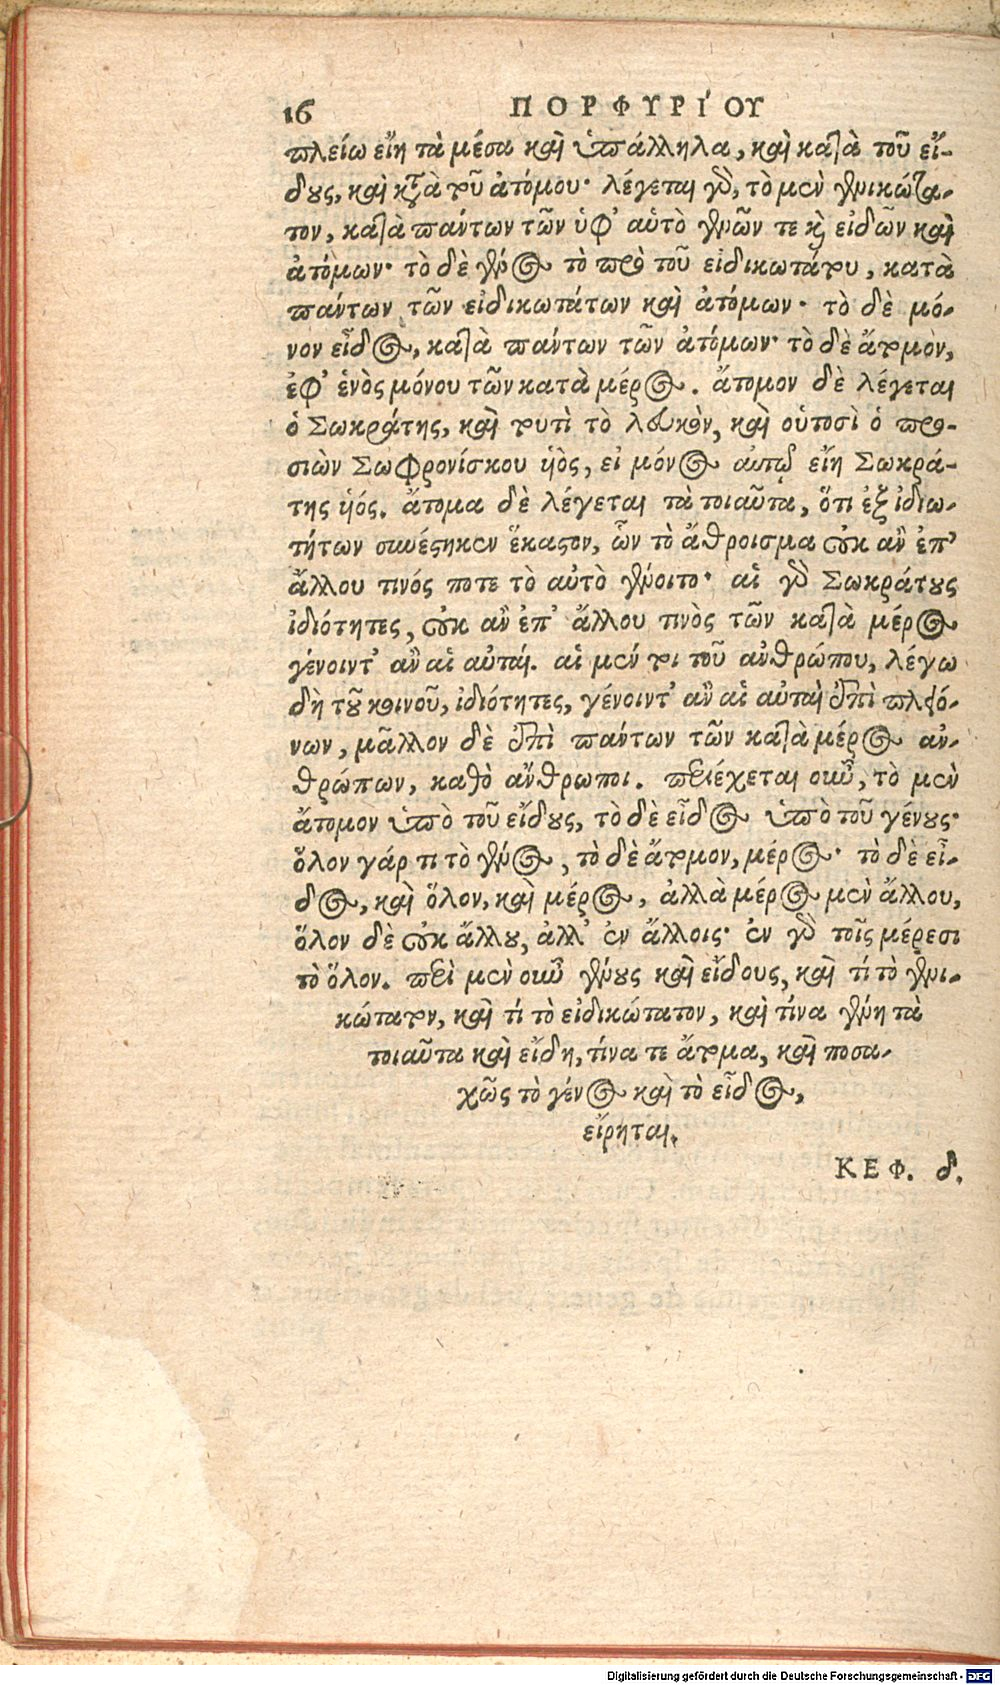 16 ΠΟΡΦΥΡΊΟΥ
πλείω εἴη τὰ μέσα καὶ ὑπάλληλα, καὶ κατὰ τοῦ εἴ-
δους, καὶ κατὰ τοῦ ἀτόμου· λέγεται γὰρ, τὸ μὲν γενικώτα-
τον, κατὰ πάντων τῶν ὑφ' αὑτὸ γενῶν τε καὶ εἰδῶν καὶ
ἀτόμων· τὸ δὲ γένος τὸ πρὸ τοῦ εἰδικωτάτου, κατὰ
πάντων τῶν εἰδικωτάτων καὶ ἀτόμων· τὸ δὲ μό-
νον εἶδος, κατὰ πάντων τῶν ἀτόμων· τὸ δὲ ἄτομον,
ἐφ' ἑνὸς μόνου τῶν κατὰ μέρος. ἄτομον δὲ λέγεται
ὁ Σωκράτης, καὶ τουτὶ τὸ λευκὸν, καὶ οὑτοσὶ ὁ προ-
σιὼν Σωφρονίσκου υἱὸς, εἰ μόνος αὐτῷ εἴη Σωκρά-
της υἱός. ἄτομα δὲ λέγεται τὰ τοιαῦτα, ὅτι ἐξ ἰδιω-
τήτων συνέστηκεν ἕκαστον, ὧν τὸ ἄθροισμα οὐκ ἂν ἐπ'
ἄλλου τινός ποτε τὸ αὐτὸ γένοιτο· αἱ γὰρ Σωκράτους
ἰδιότητες, οὐκ ἂν ἐπ' ἄλλου τινὸς τῶν κατὰ μέρος
γένοιντ' ἂν αἱ αὐταί. αἱ μέν τοι τοῦ ἀνθρώπου, λέγω
δὴ τοῦ κοινοῦ, ἰδιότητες, γένοιντ' ἂν αἱ αὐταὶ ἐπὶ πλειό-
νων, μᾶλλον δὲ ἐπὶ πάντων τῶν κατὰ μέρος ἀν-
θρώπων, καθὸ ἄνθρωποι. περιέχεται οὖν, τὸ μὲν
ἄτομον ὑπὸ τοῦ εἴδους, τὸ δὲ εἶδος ὑπὸ τοῦ γένους·
ὅλον γάρ τι τὸ γένος, τὸ δὲ ἄτομον, μέρος· τὸ δὲ εἶ-
δος, καὶ ὅλον, καὶ μέρος, ἀλλὰ μέρος μὲν ἄλλου,
ὅλον δὲ οὐκ ἄλλου, ἀλλ' ἐν ἄλλοις· ἐν γὰρ τοῖς μέρεσι
τὸ ὅλον. περὶ μὲν οὖν γένους καὶ εἴδους, καὶ τί τὸ γενι-
κώτατον, καὶ τί τὸ εἰδικώτατον, καὶ τίνα γένη τὰ
τοιαῦτα καὶ εἴδη, τίνα τε ἄτομα, καὶ ποσα-
χῶς τὸ γένος καὶ τὸ εἶδος,
εἴρηται.
ΚΕΦ. δ.
Digitalisierung gefördert durch die Deutsche Forschungsgemeinschaft - DFG